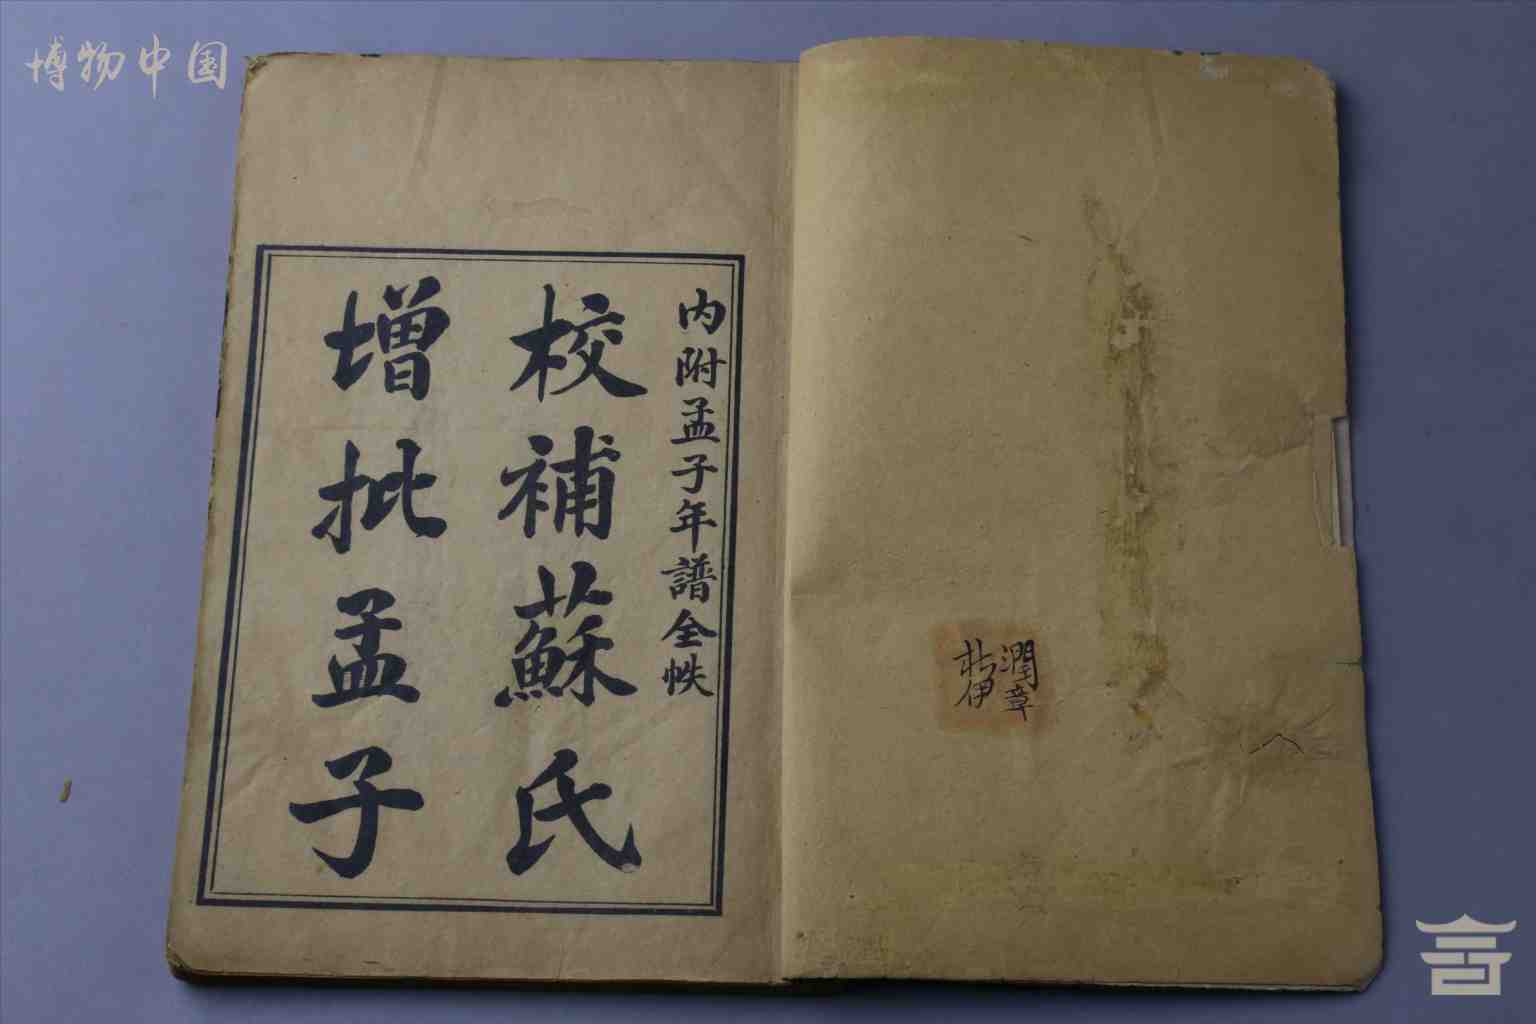 博物中国
内附孟子年譜全帙
校補蘇氏
增批孟子
潤章